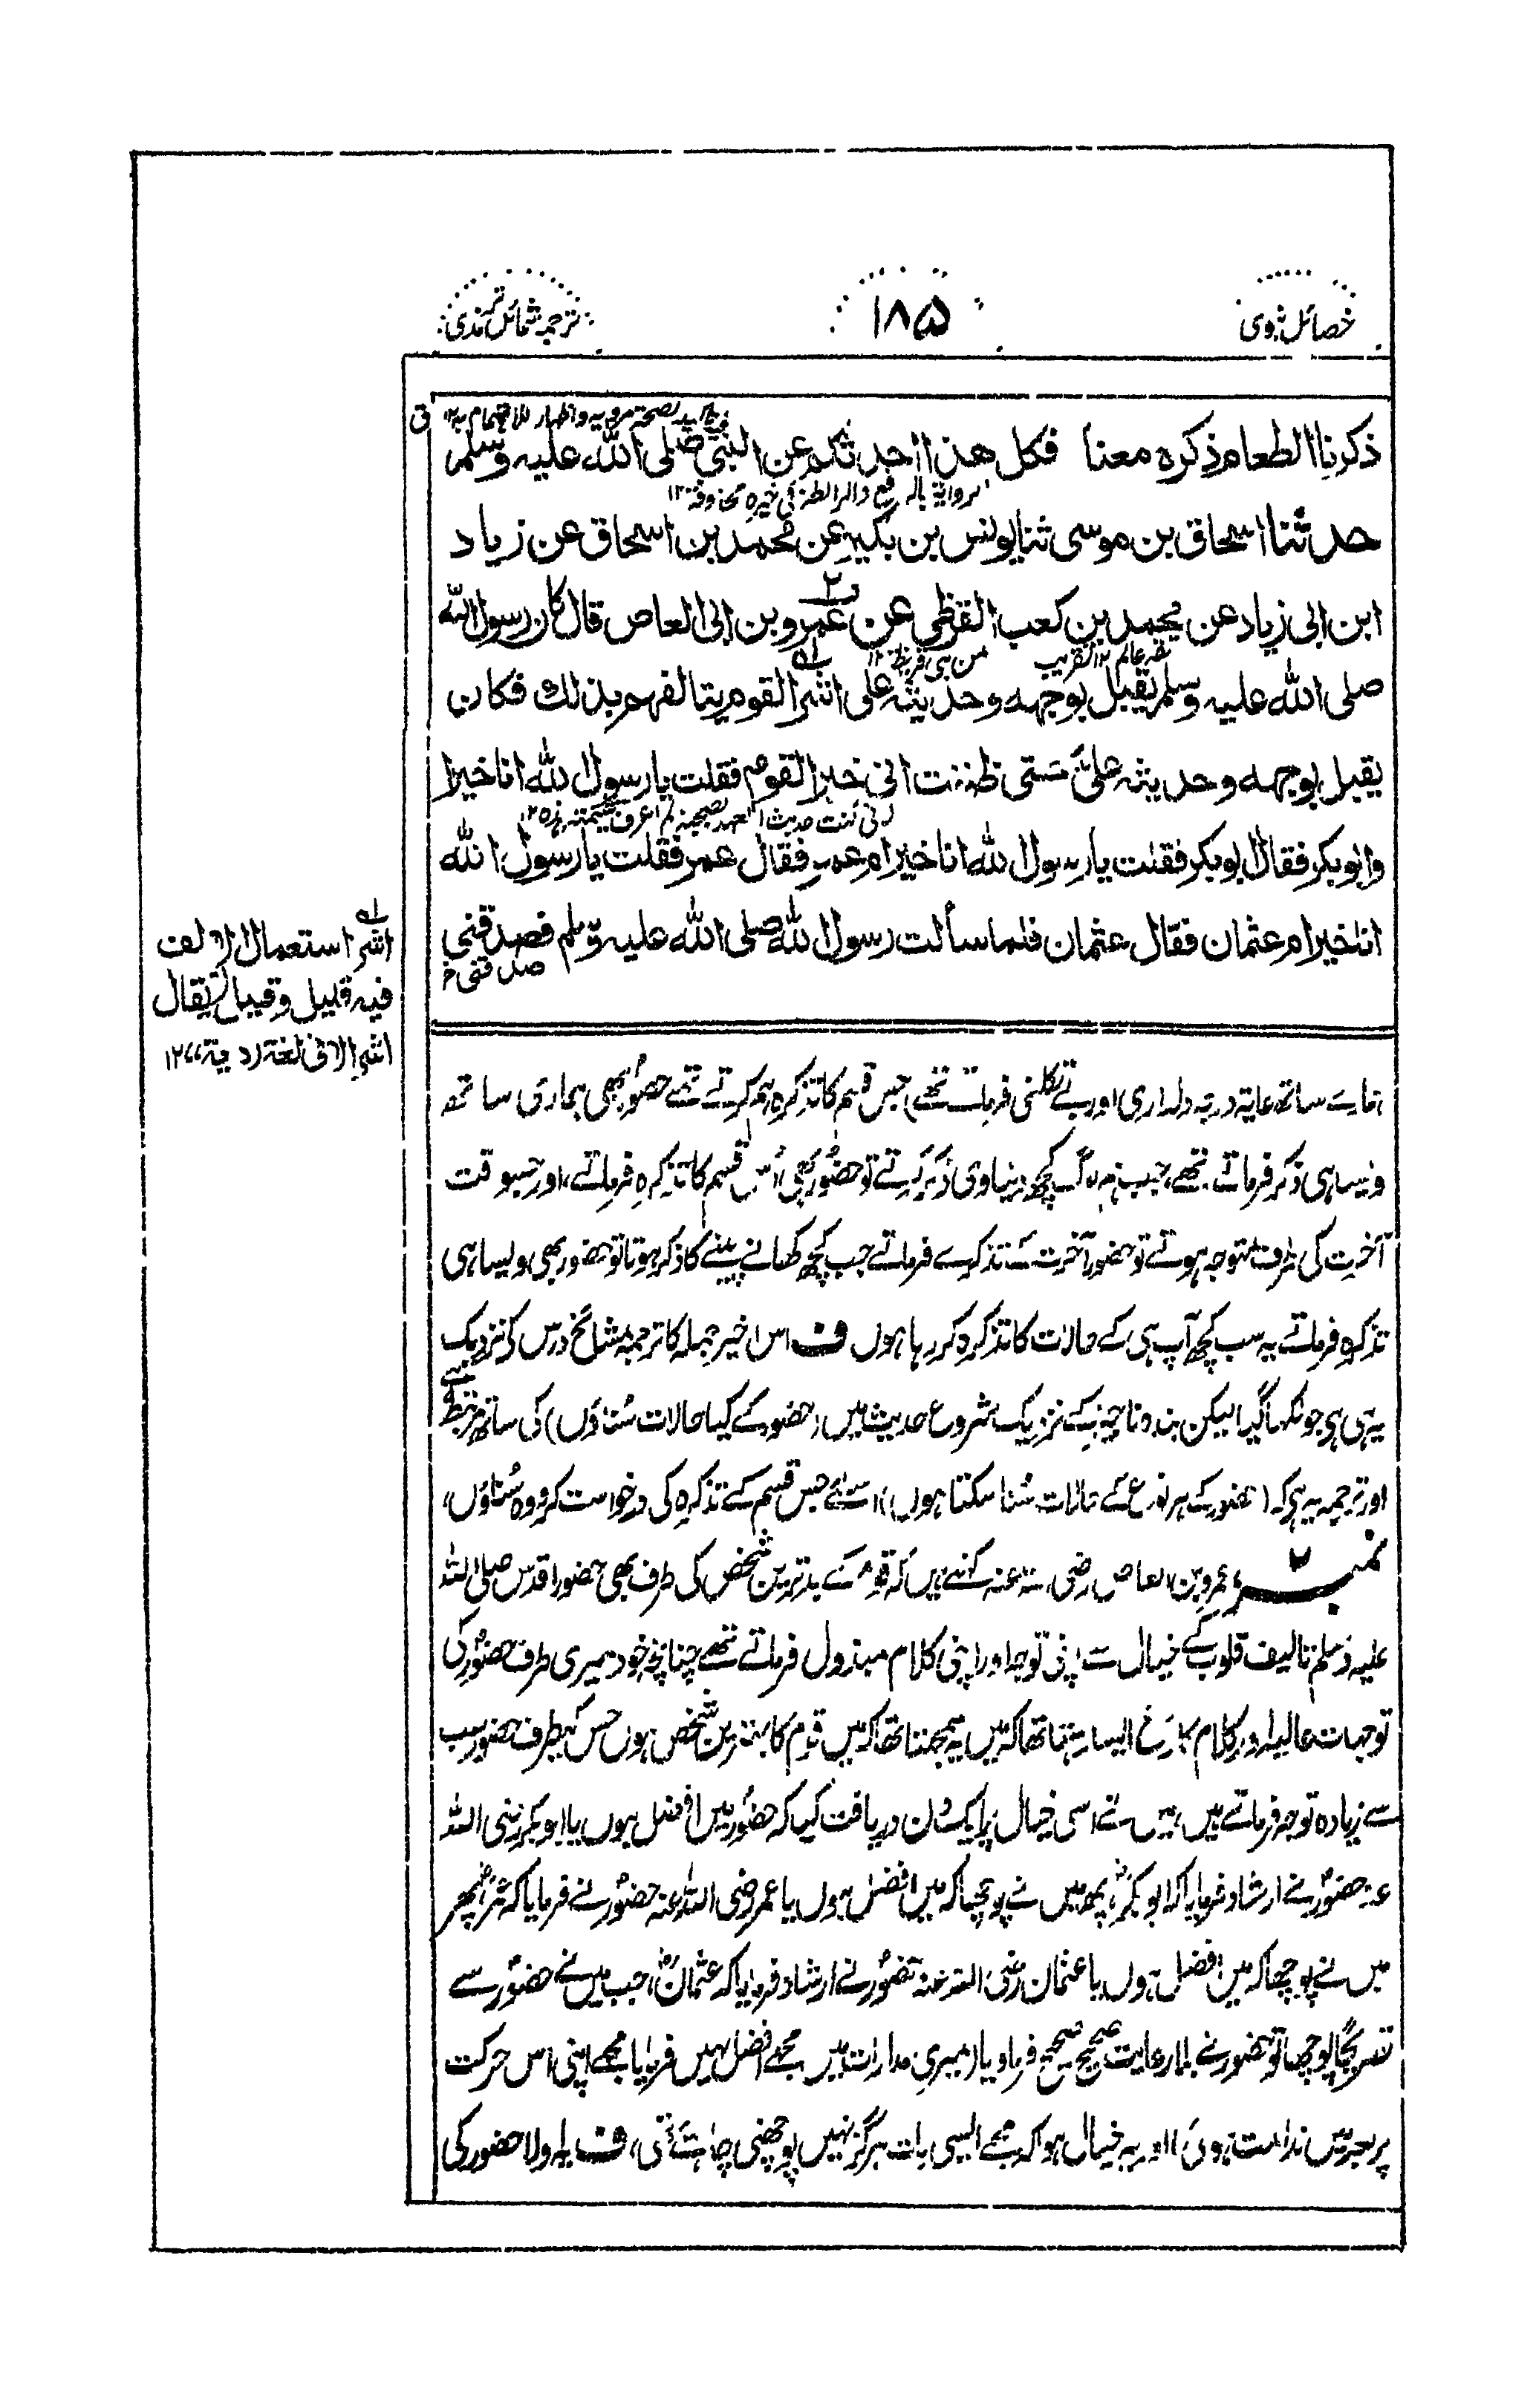 خصائل نبوی
۱۸۵
ترجمہ شمائل ترمذی
فیہ تاکید لصحۃ مرویہ واظہار للاھتمام بہ ۱۲ ق
ذکرنا الطعام ذکرہ معنا فکل ھذا احدثکم عن النبی صلی اللہ علیہ وسلم
روایۃ بالرفع والرابطۃ فی خبرہ محذوفۃ ۱۲
حدثنا اسحاق بن موسی ثنا یونس بن بکیر عن محمد بن اسحاق عن زیاد
۲
ابن ابی زیاد عن محمد بن کعب القرظی عن عمرو بن ابی العاص قال کان رسول اللہ
ثقۃ عالم ۱۲ تقریب من بنی قریظۃ ۱۲
صلی اللہ علیہ وسلم یقبل بوجھہ وحدیثہ علی اشر القوم یتالفھم بذلک فکان
یقبل بوجھہ وحدیثہ علی حتی ظننت انی خیر القوم فقلت یا رسول اللہ انا خیر ا
و ابوبکر فقال ابوبکر فقلت یا رسول اللہ انا خیر ام عمر فقال عمر فقلت یا رسول اللہ
انا خیر ام عثمان فقال عثمان فلما سألت رسول اللہ صلی اللہ علیہ وسلم فصدقنی
صدقنی خ
اشر استعمال الالف
فیہ قلیل وقیل لا یقال
اشر الا فی لغۃ ردیۃ ۱۲
ہمارے ساتھ غایۃ درجہ دلداری اور بے تکلفی فرماتے تھے) جس قسم کا تذکرہ ہم کرتے تھے حضورؐ بھی ہماری ساتھ
ویسا ہی ذکر فرماتے تھے، جب ہم لوگ کچھ دنیاوی ذکر کرتے تو حضورؐ بھی اُس قسم کا تذکرہ فرماتے، اور جسوقت
آخرت کی طرف متوجہ ہوتے تو حضور آخرت کے تذکرے فرماتے جب کچھ کھانے پینے کا ذکر ہوتا تو حضور بھی ویسا ہی
تذکرہ فرماتے یہ سب کچھ آپ ہی کے حالات کا تذکرہ کر رہا ہوں ف اس اخیر جملہ کا ترجمہ مشائخ درس کی نزدیک
یہ ہی ہی جو لکھا گیا لیکن بندہ ناچیز کے نزدیک شروع حدیث میں (حضور کے کیا حالات سُناؤں) کی ساتھ مرتبط ہے
اور ترجمہ یہ ہی کہ (حضور کے ہر نوع کے حالات سُنا سکتا ہوں) اسلئے جس قسم کے تذکرہ کی درخواست کرو وہ سُناؤں،
نمبر ۲ عمرو بن العاص رضی اللہ عنہ کہتے ہیں کہ قوم کے بدترین شخص کی طرف بھی حضور اقدس صلی اللہ
علیہ وسلم تالیف قلوب کے خیال سے اپنی توجہ اور اپنی کلام مبذول فرماتے تھے چنانچہ خود میری طرف حضورؐ کی
توجہات عالیہ اور کلام کا رخ ایسا رہتا تھا کہ میں یہ سمجھتا تھا کہ میں قوم کا بہترین شخص ہوں جس کیطرف حضور سب
سے زیادہ توجہ فرماتے ہیں، میں نے اسی خیال پر ایک دن دریافت کیا کہ حضورؐ میں افضل ہوں یا ابوبکر رضی اللہ
عنہ حضورؐ نے ارشاد فرمایا کہ ابوبکرؓ، پھر میں نے پوچھا کہ میں افضل ہوں یا عمر رضی اللہ عنہ حضورؐ نے فرمایا کہ عمرؓ پھر
میں نے پوچھا کہ میں افضل ہوں یا عثمان رضی اللہ عنہ حضورؐ نے ارشاد فرمایا کہ عثمانؓ، جب میں نے حضورؐ سے
تصریحًا پوچھا تو حضور نے بلا رعایت صحیح صحیح فرما دیا (میری مدارات میں مجھے افضل نہیں فرمایا) مجھے اپنی اس حرکت
پر بعد میں ندامت ہوئی اور یہ خیال ہوا کہ مجھے ایسی بات ہرگز نہیں پوچھنی چاہئے تھی، ف یا اولا حضور کی